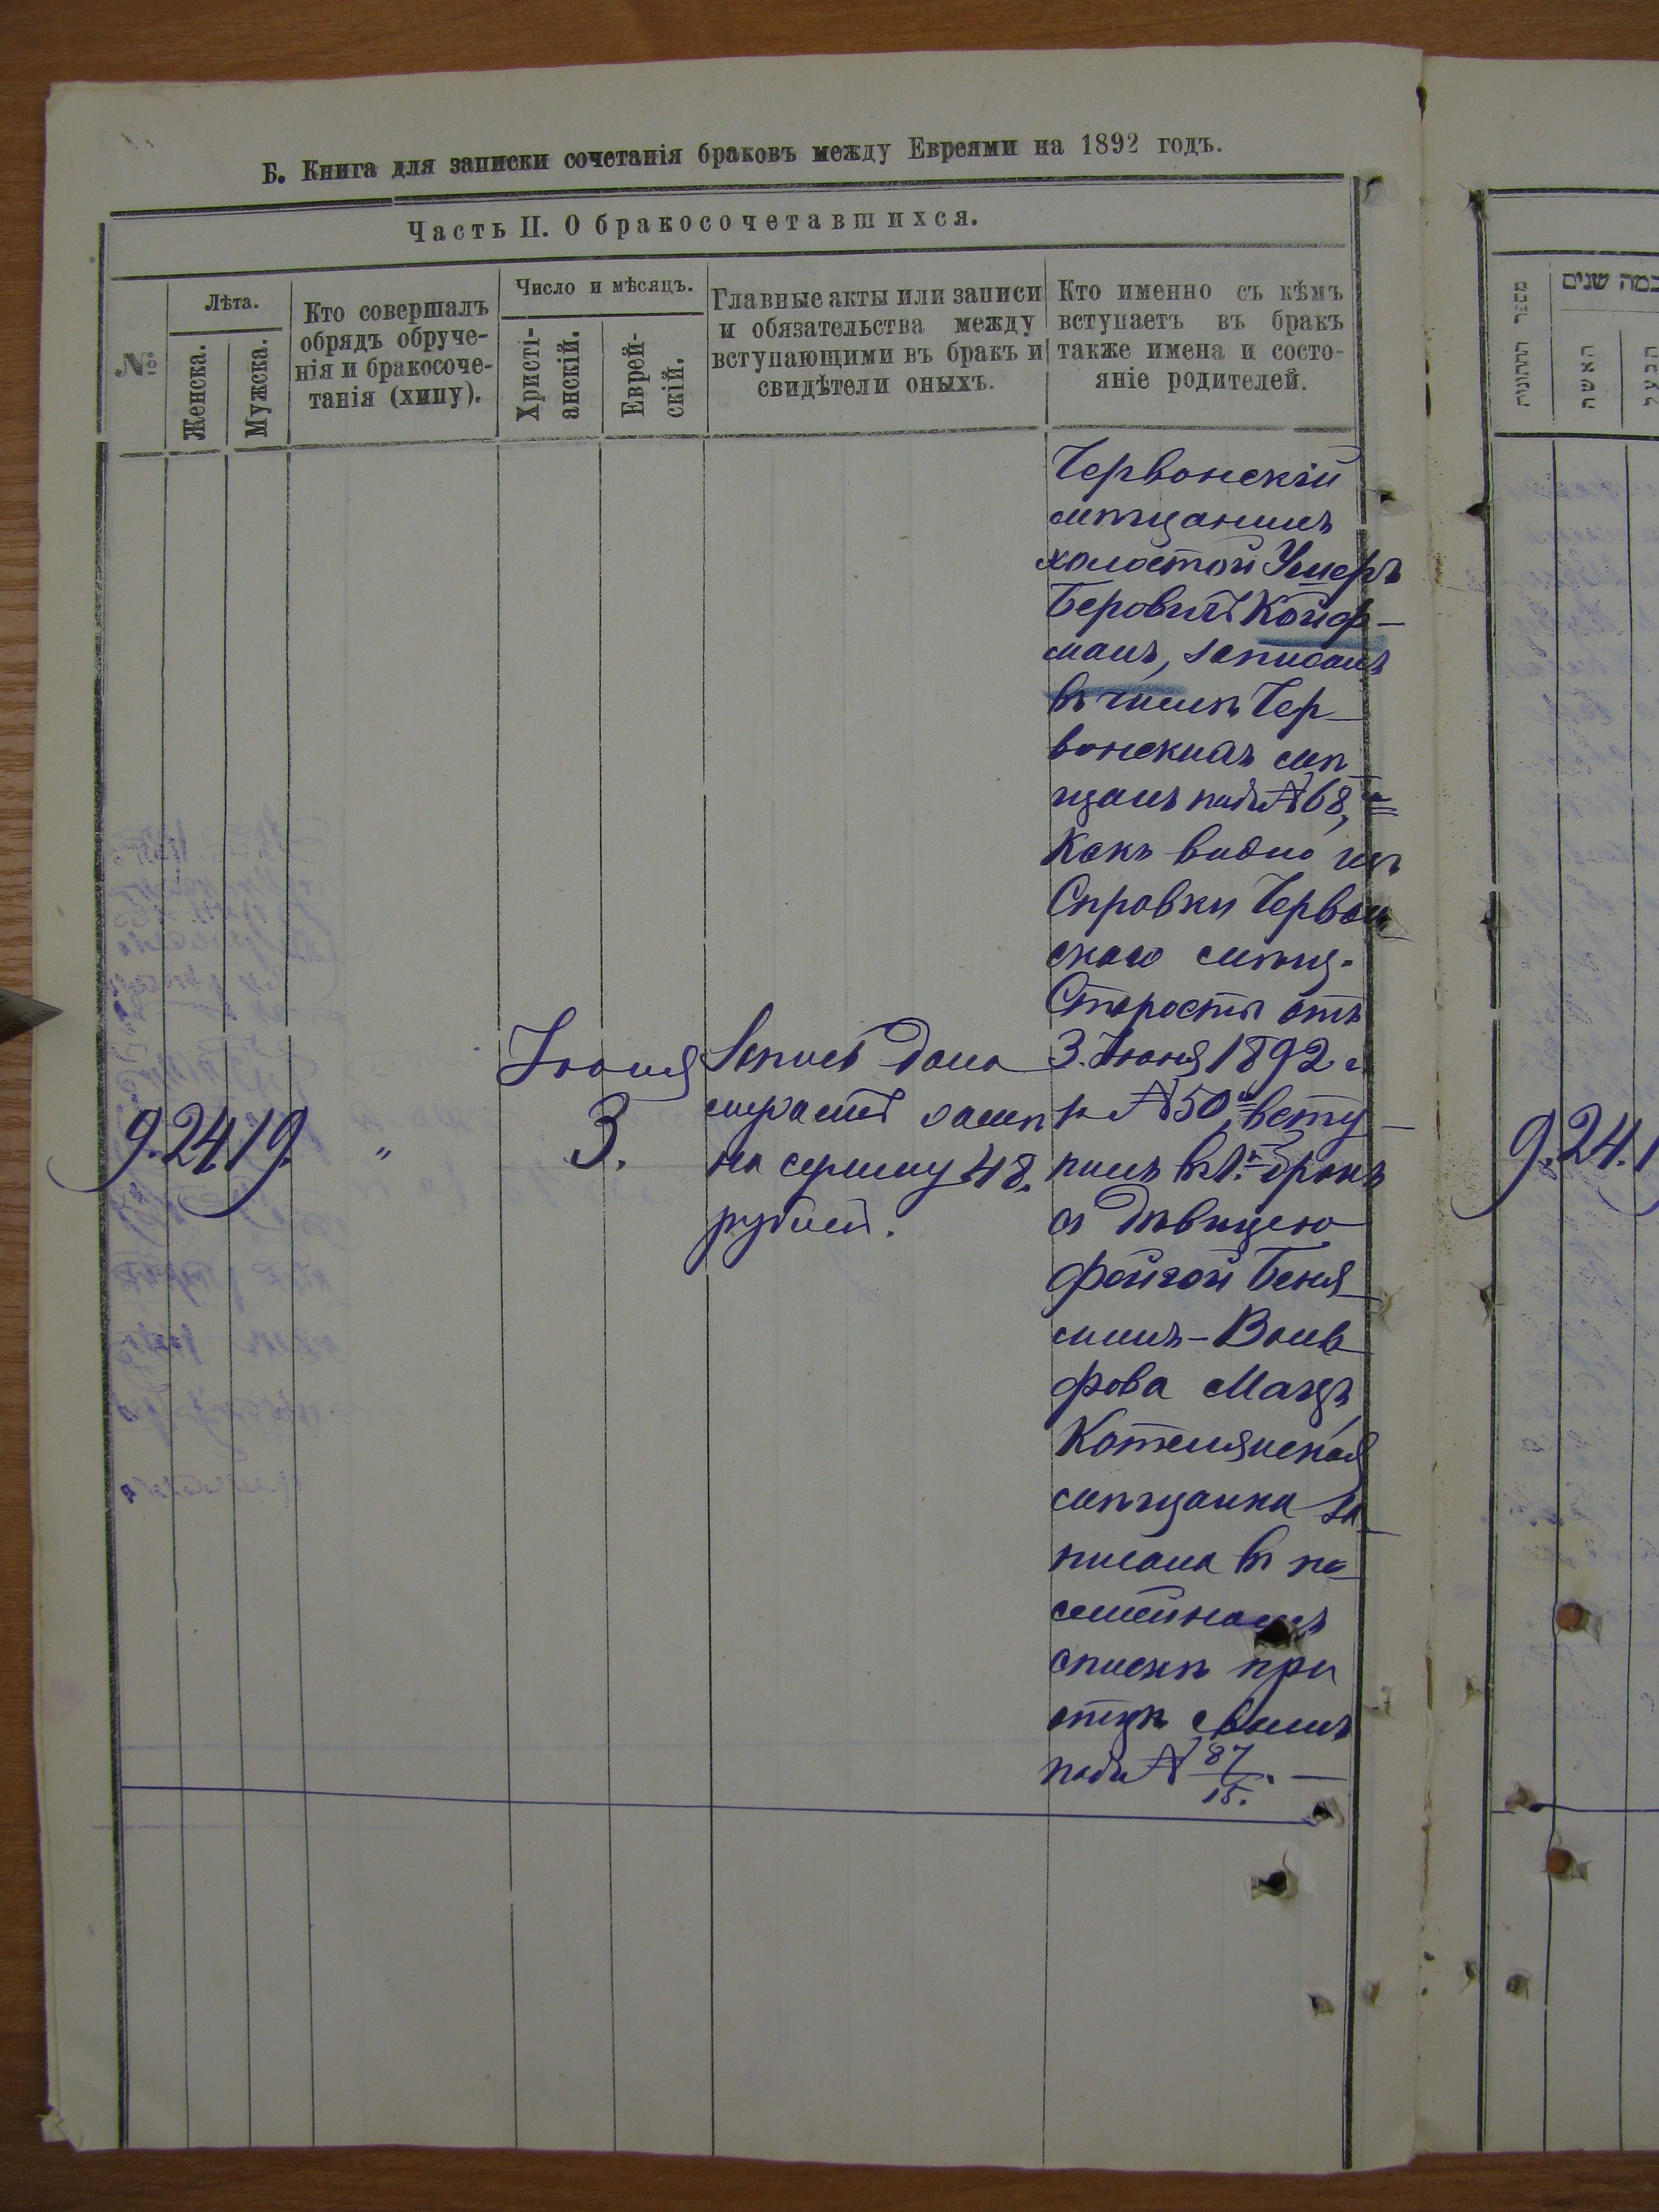 Б. Книга для записки сочетанія браковъ между Евреями на 1892 годъ.
Часть II. О бракосочетавшихся.
№
Лѣта.
Женска.
Мужска.
Кто совершалъ
обрядъ обруче-
нія и бракосоче-
танія (хипу).
Число и мѣсяцъ.
Христі-
анскій.
Еврей-
скій.
Главные акты или записи
и обязательства между
вступающими въ бракъ и
свидѣтели оныхъ.
Кто именно съ кѣмъ
вступаетъ въ бракъ
также имена и состо-
яніе родителей.
9. 24 19.
"
Іюня
3.
Запись дана
на сумму 48.
рублей.
Червонскій
мѣщанинъ
холостой Ушеръ
Беровичъ Койф-
манъ, записанъ
въ числѣ Чер-
вонскихъ мѣ-
щанъ подъ № 68,
какъ видно изъ
Справки Червон-
скаго мѣщ.
Старосты отъ
3. Іюня 1892 г.
№ 50, всту-
пилъ въ 1. бракъ
съ дѣвицею
Фейгой Беня-
минъ-Воль
фова Магдъ
Котелянская
мѣщанка за-
писана въ по-
семейномъ
спискѣ при
отцѣ своимъ
подъ № 87/15. —
מספר החתונות
כמה שנים
האשה
הבעל
9. 24. 1